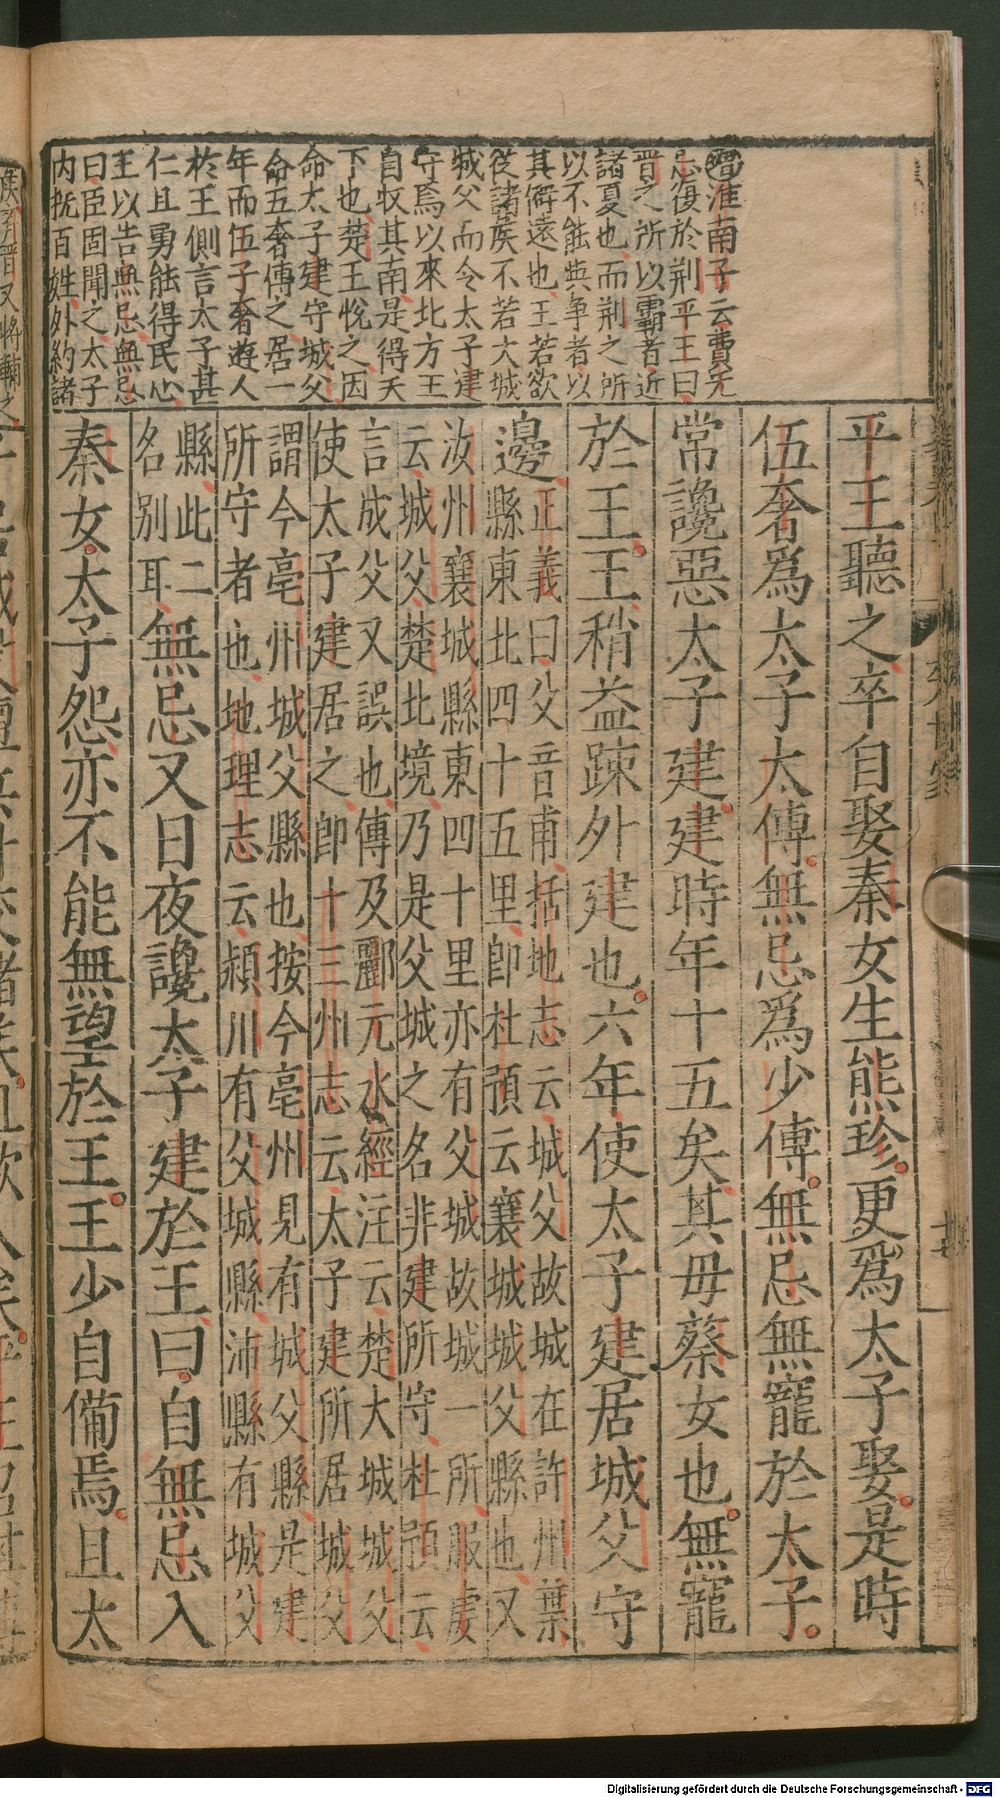 增淮南子云費无
忌復於荆平王曰
晋之所以霸者近
諸夏也而荆之所
以不能與争者以
其僻遠也王若欲
從諸矦不若大城
城父而令太子建
守焉以來北方王
自收其南是得天
下也楚王悅之因
命太子建守城父
命五奢傅之居一
年而伍子奢遊人
於王側言太子甚
仁且勇能得民心
王以告無忌無忌
曰臣固聞之太子
内撫百姓外約諸
平王聽之卒自娶秦女生熊珍更爲太子娶是時
伍奢爲太子太傅無忌爲少傅無忌無寵於太子
常讒惡太子建建時年十五矣其母蔡女也無寵
於王王稍益踈外建也六年使太子建居城父守
邊
正義曰父音甫括地志云城父故城在許州葉
縣東北四十五里即杜預云襄城城父縣也又
汝州襄城縣東四十里亦有父城故城一所服虔
云城父楚北境乃是父城之名非建所守杜預云
言成父又誤也傳及酈元水經注云楚大城城父
使太子建居之即十三州志云太子建所居城父
謂今亳州城父縣也按今亳州見有城父縣是建
所守者也地理志云潁川有父城縣沛縣有城父
縣此二
名別耳
無忌又日夜讒太子建於王曰自無忌入
秦女太子怨亦不能無望於王王少自備焉且太
Digitalisierung gefördert durch die Deutsche Forschungsgemeinschaft - DFG